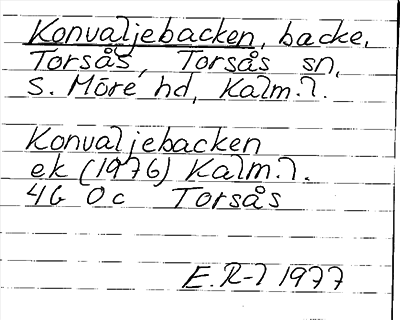 Konvaljebacken, backe,
Torsås, Torsås sn,
S. Möre hd, Kalm. l.
Konvaljebacken
ek (1976) Kalm. l.
4G 0c Torsås
E. R-l 1977